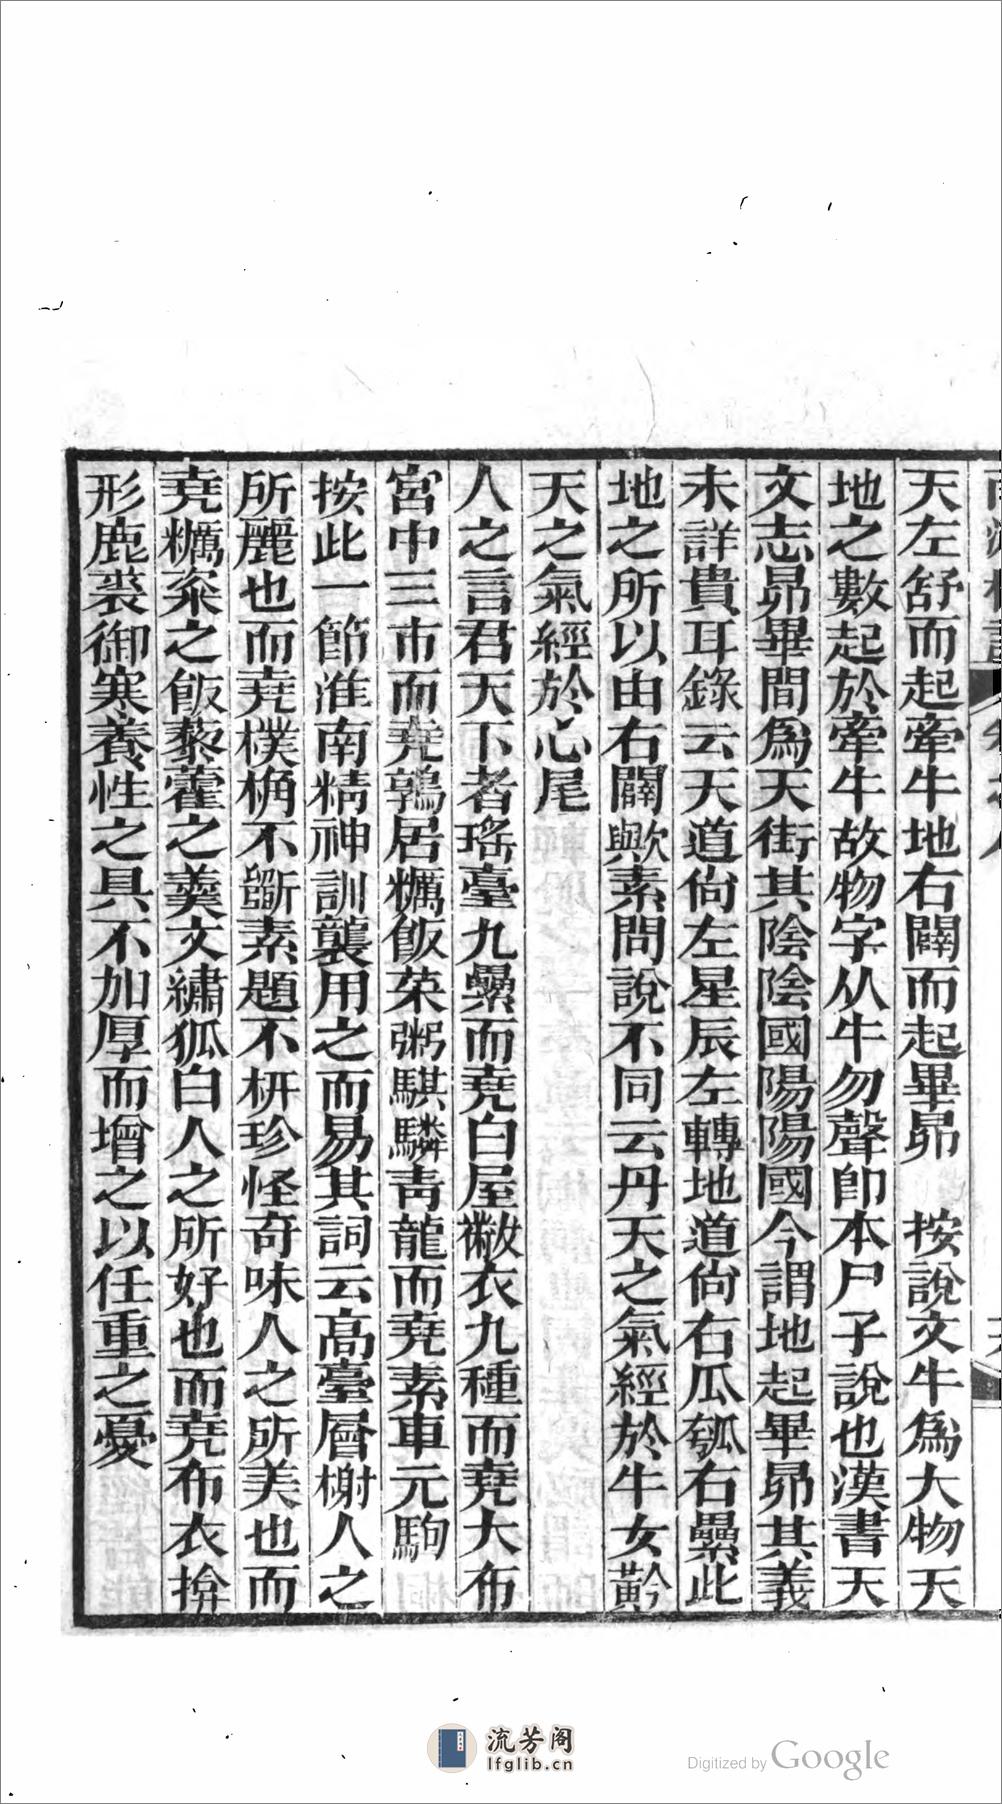 天左舒而起牽牛地右闢而起畢昴　按說文牛爲大物天
地之數起於牽牛故物字从牛勿聲卽本尸子說也漢書天
文志昴畢間爲天街其陰陰國陽陽國今謂地起畢昴其義
未詳貴耳錄云天道尙左星辰左轉地道尙右瓜瓠右纍此
地之所以由右闢歟素問說不同云丹天之氣經於牛女黅
天之氣經於心尾
人之言君天下者瑤臺九纍而堯白屋黻衣九種而堯大布
宮中三市而堯鶉居糲飯菜粥騏驎靑龍而堯素車元駒
按此一節淮南精神訓襲用之而易其詞云高臺層榭人之
所麗也而堯樸桷不斲素題不枅珍怪奇味人之所美也而
堯糲粢之飯藜藿之羹文繡狐白人之所好也而堯布衣揜
形鹿裘御寒養性之具不加厚而增之以任重之憂
流芳阁
lfglib.cn
Digitized by Google